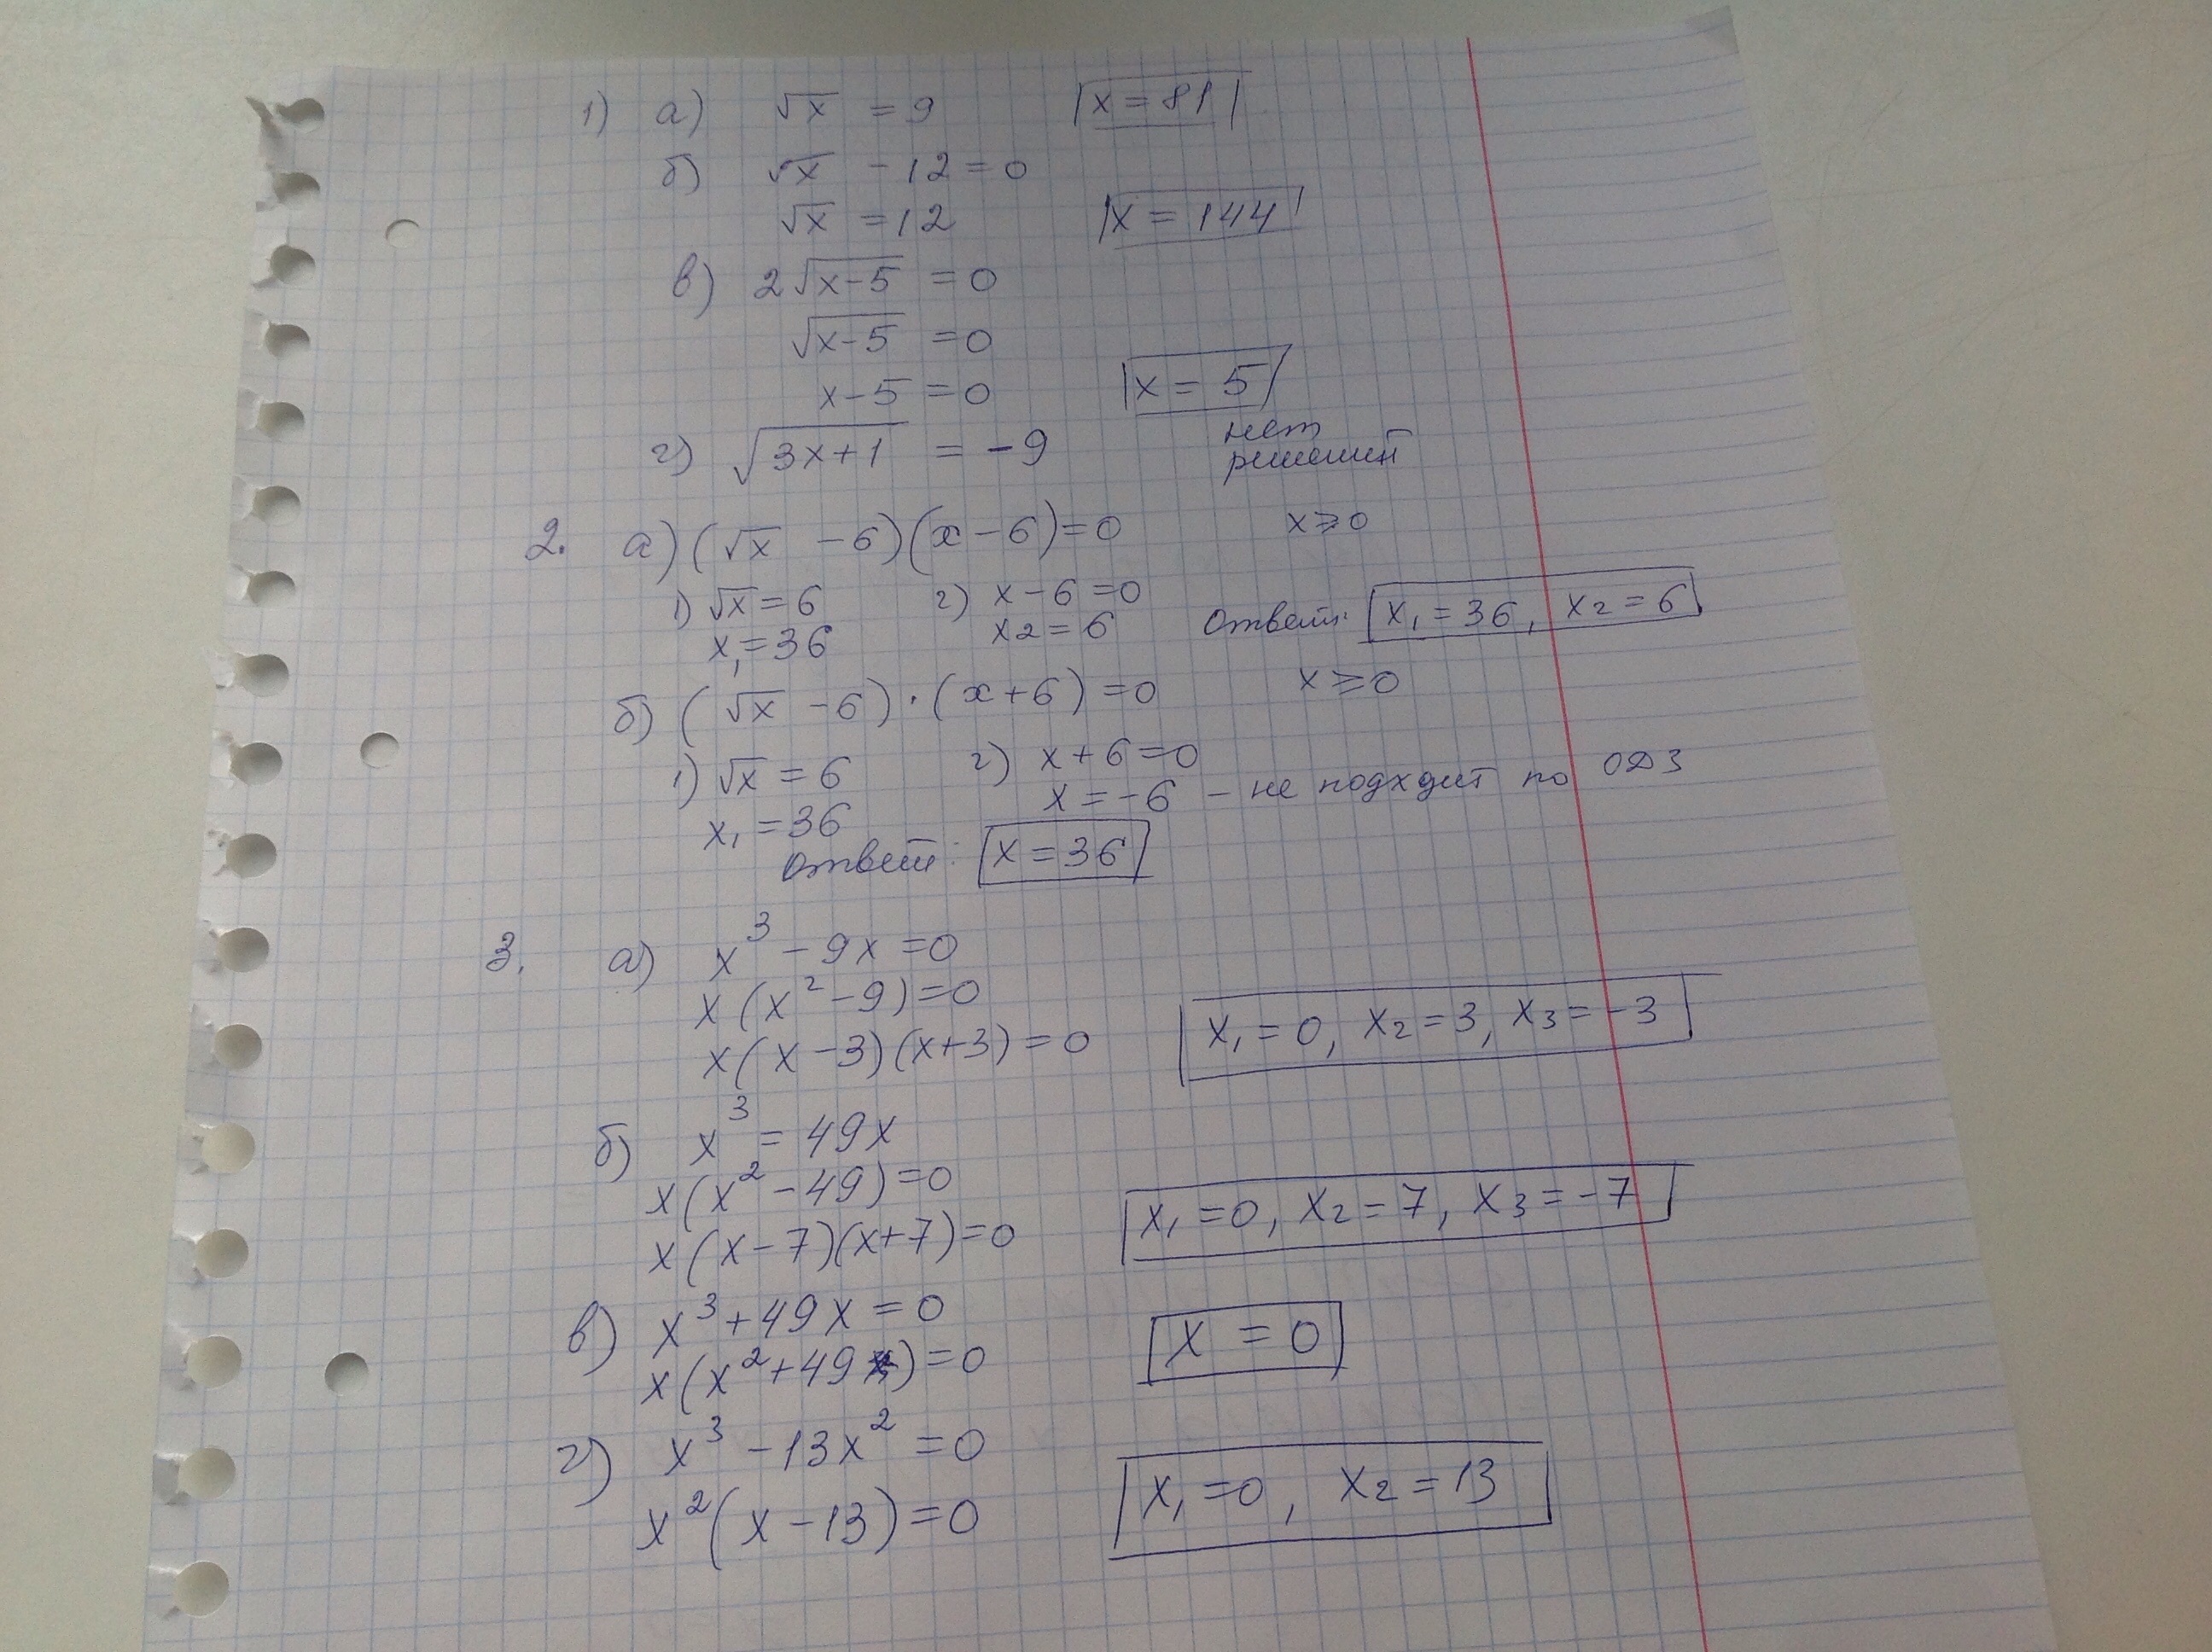 1) а) √x = 9 x = 81
б) √x - 12 = 0
√x = 12 x = 144
в) 2√x-5 = 0
√x-5 = 0
x-5 = 0 x = 5
г) √3x+1 = -9 нет решений
2. а) (√x - 6)(x-6)=0 x ⩾ 0
1) √x = 6 2) x-6=0
x₁=36 x2=6 Ответ: x₁=36, x₂=6
б) (√x -6)·(x+6)=0 x ⩾ 0
1) √x = 6 2) x+6=0
x₁=36 x=-6 - не подходит по ОДЗ
Ответ: x=36
3. а) x³ - 9x = 0
x(x²-9)=0
x(x-3)(x+3)=0 x₁=0, x₂=3, x₃=-3
б) x³ = 49x
x(x²-49)=0
x(x-7)(x+7)=0 x₁=0, x₂=7, x₃=-7
в) x³+49x=0
x(x²+49)=0 x = 0
г) x³-13x²=0
x²(x-13)=0 x₁=0, x₂=13